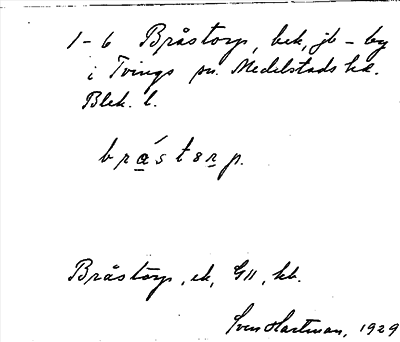 1-6 Bråstorp, bek, jb-by
i Tvings sn. Medelstads hd.
Blek. l.
bråstorp.
Bråstorp, ek, GII, kb.
Sven Hartman, 1929